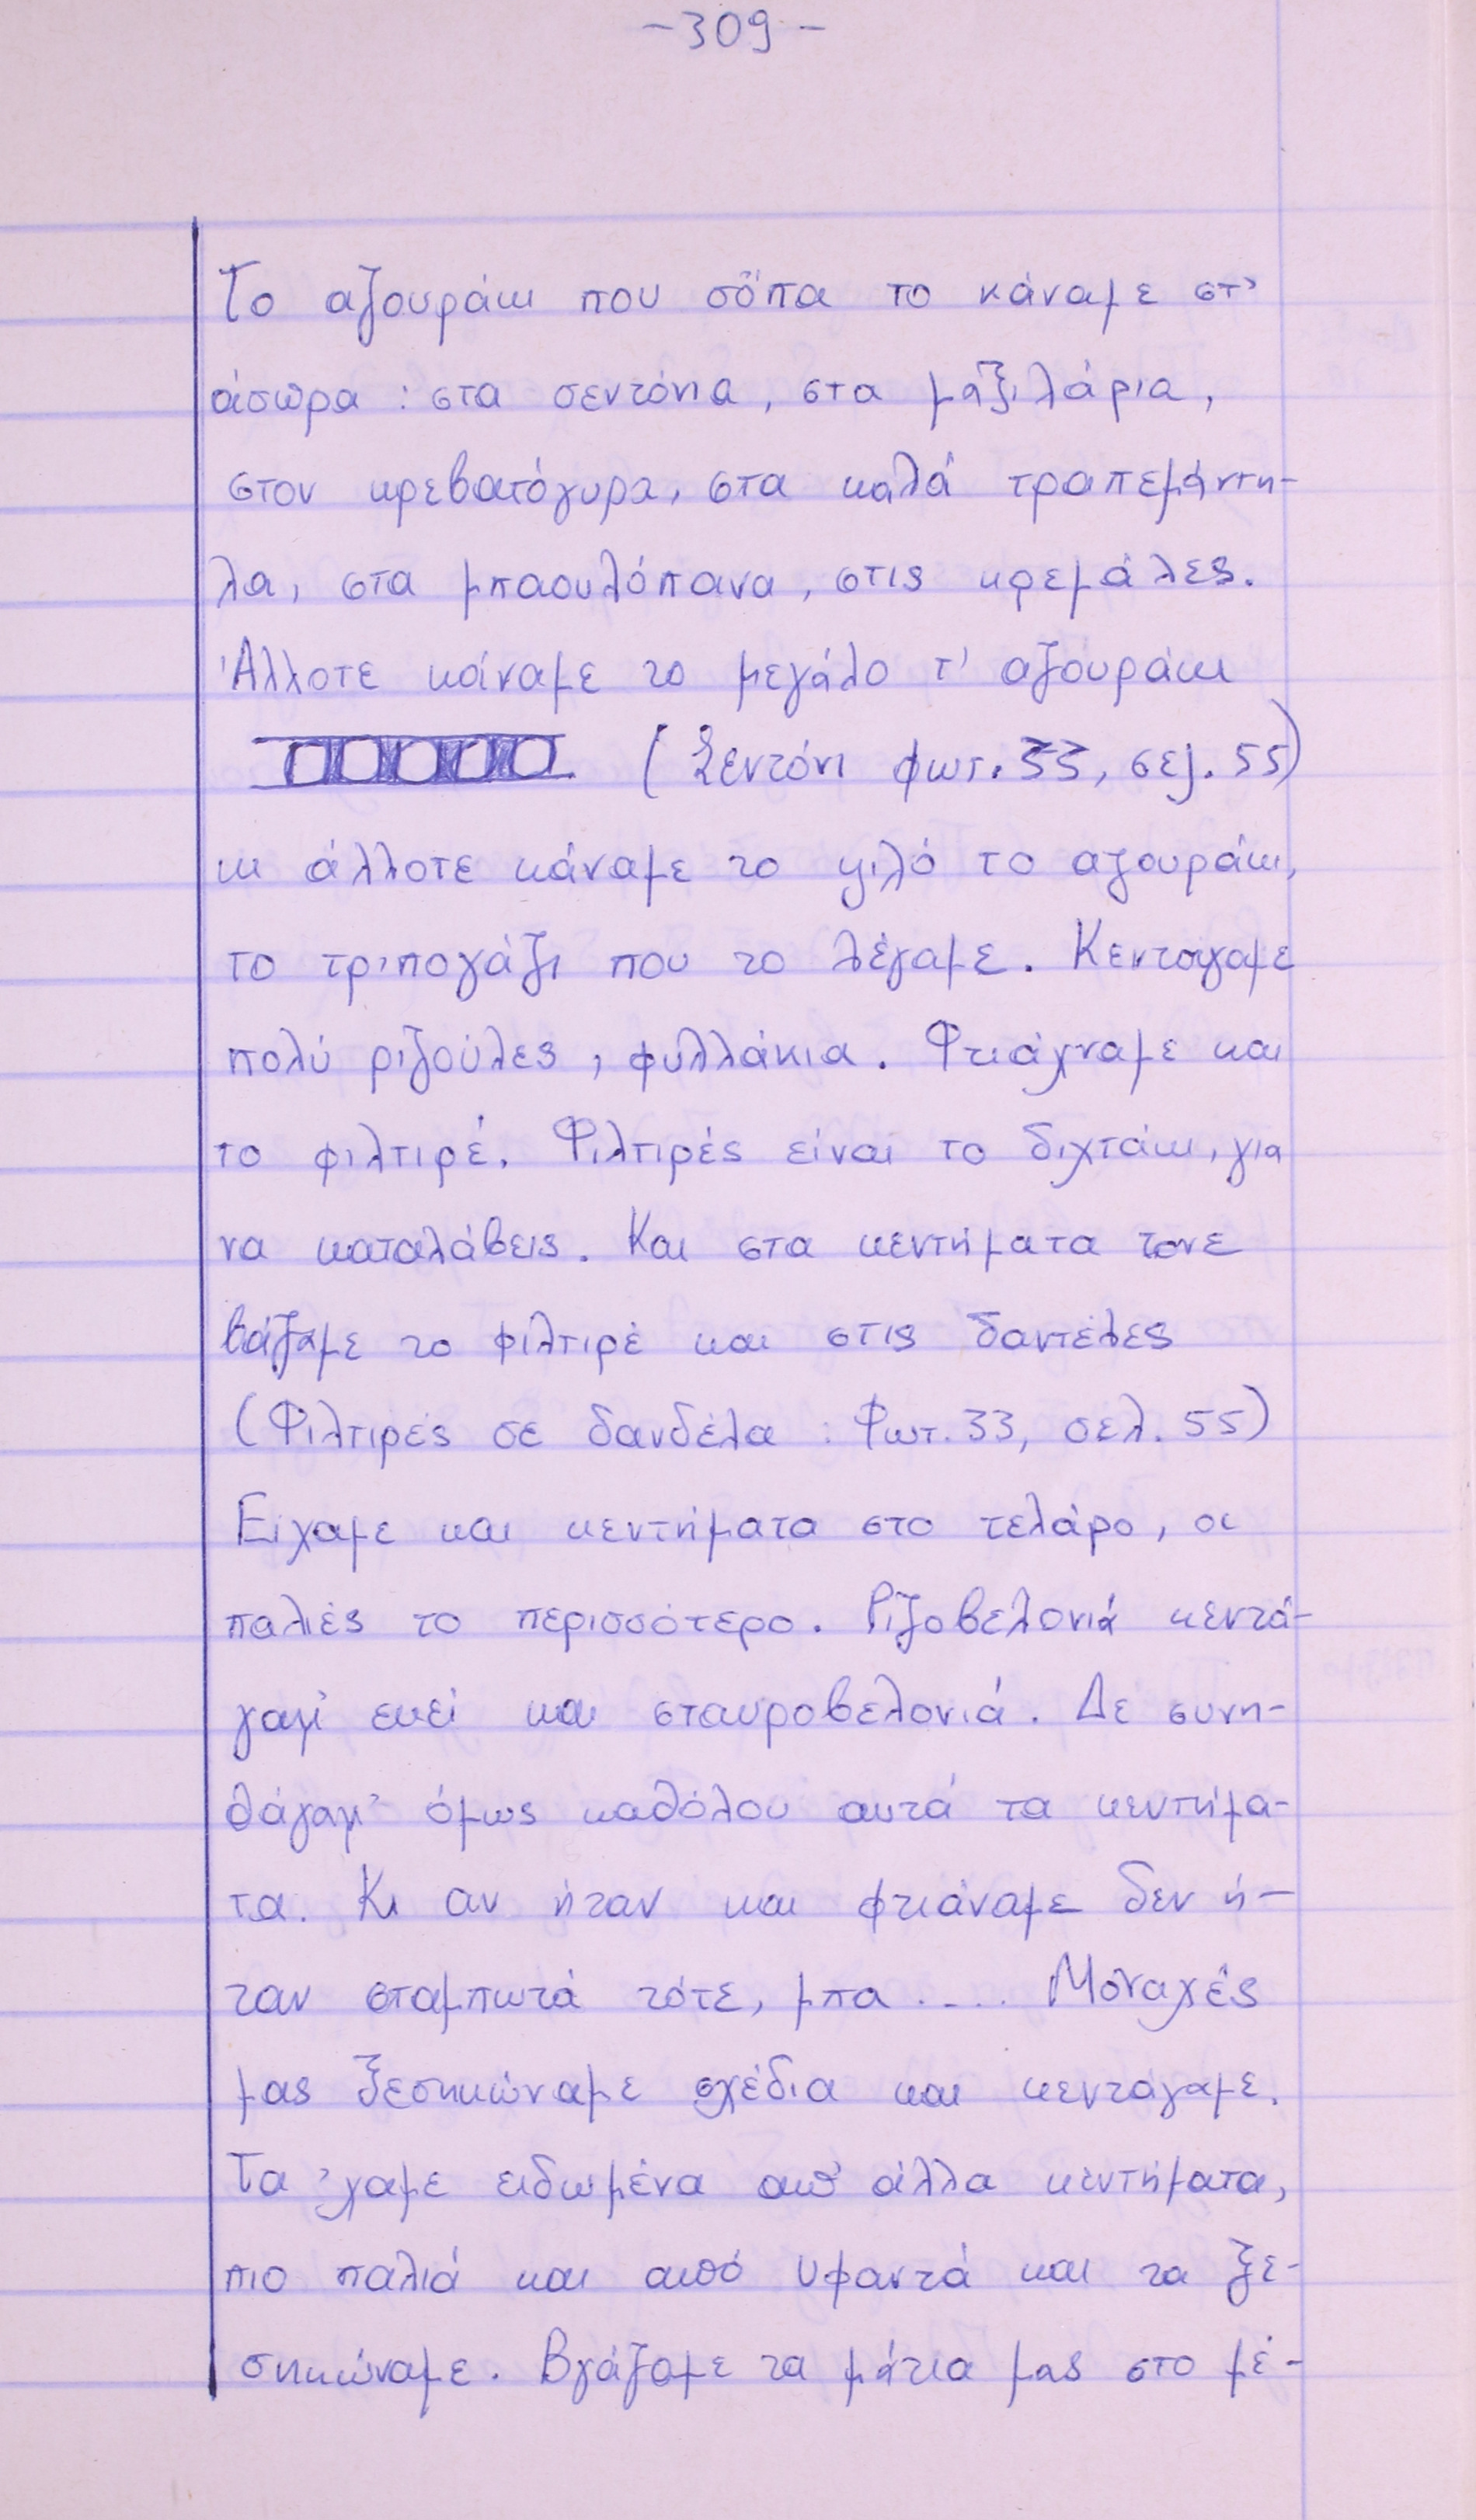 -309-
Το αζουράκι που σόπα το κάναμε στ'
άσπρα : στα σεντόνια, στα μαξιλάρια,
στον κρεβατόγυρο, στα καλά τραπεμάντη-
λα, στα μπαουλόπανα, στις κρεμάλες.
Άλλοτε κάναμε το μεγάλο τ' αζουράκι
(Σεντόνι φωτ. 33, σελ. 55)
κι άλλοτε κάναμε το ψιλό το αζουράκι,
το τριπογάζι που το λέγαμε. Κεντάγαμε
πολύ ριζούλες, φυλλάκια. Φτιάχναμε και
το φιλτιρέ. Φιλτιρές είναι το διχτάκι, για
να καταλάβεις. Και στα κεντήματα τονε
βάζαμε το φιλτιρέ και στις δαντέλες
(Φιλτιρές σε δανδέλα : Φωτ. 33, σελ. 55)
Είχαμε και κεντήματα στο τελάρο, οι
παλιές το περισσότερο. Ριζοβελονιά κεντά-
γαμ' εκεί και σταυροβελονιά. Δε συνη-
θάγαμ' όμως καθόλου αυτά τα κεντήμα-
τα. Κι αν ήταν και φτιάναμε δεν ή-
ταν σταμπωτά τότε, μπα .... Μοναχές
μας ξεσηκώναμε σχέδια και κεντάγαμε.
Τα 'χαμε ειδωμένα απ' άλλα κεντήματα,
πιο παλιά και από υφαντά και τα ξε-
σηκώναμε. Βγάζαμε τα μάτια μας στο μέ-